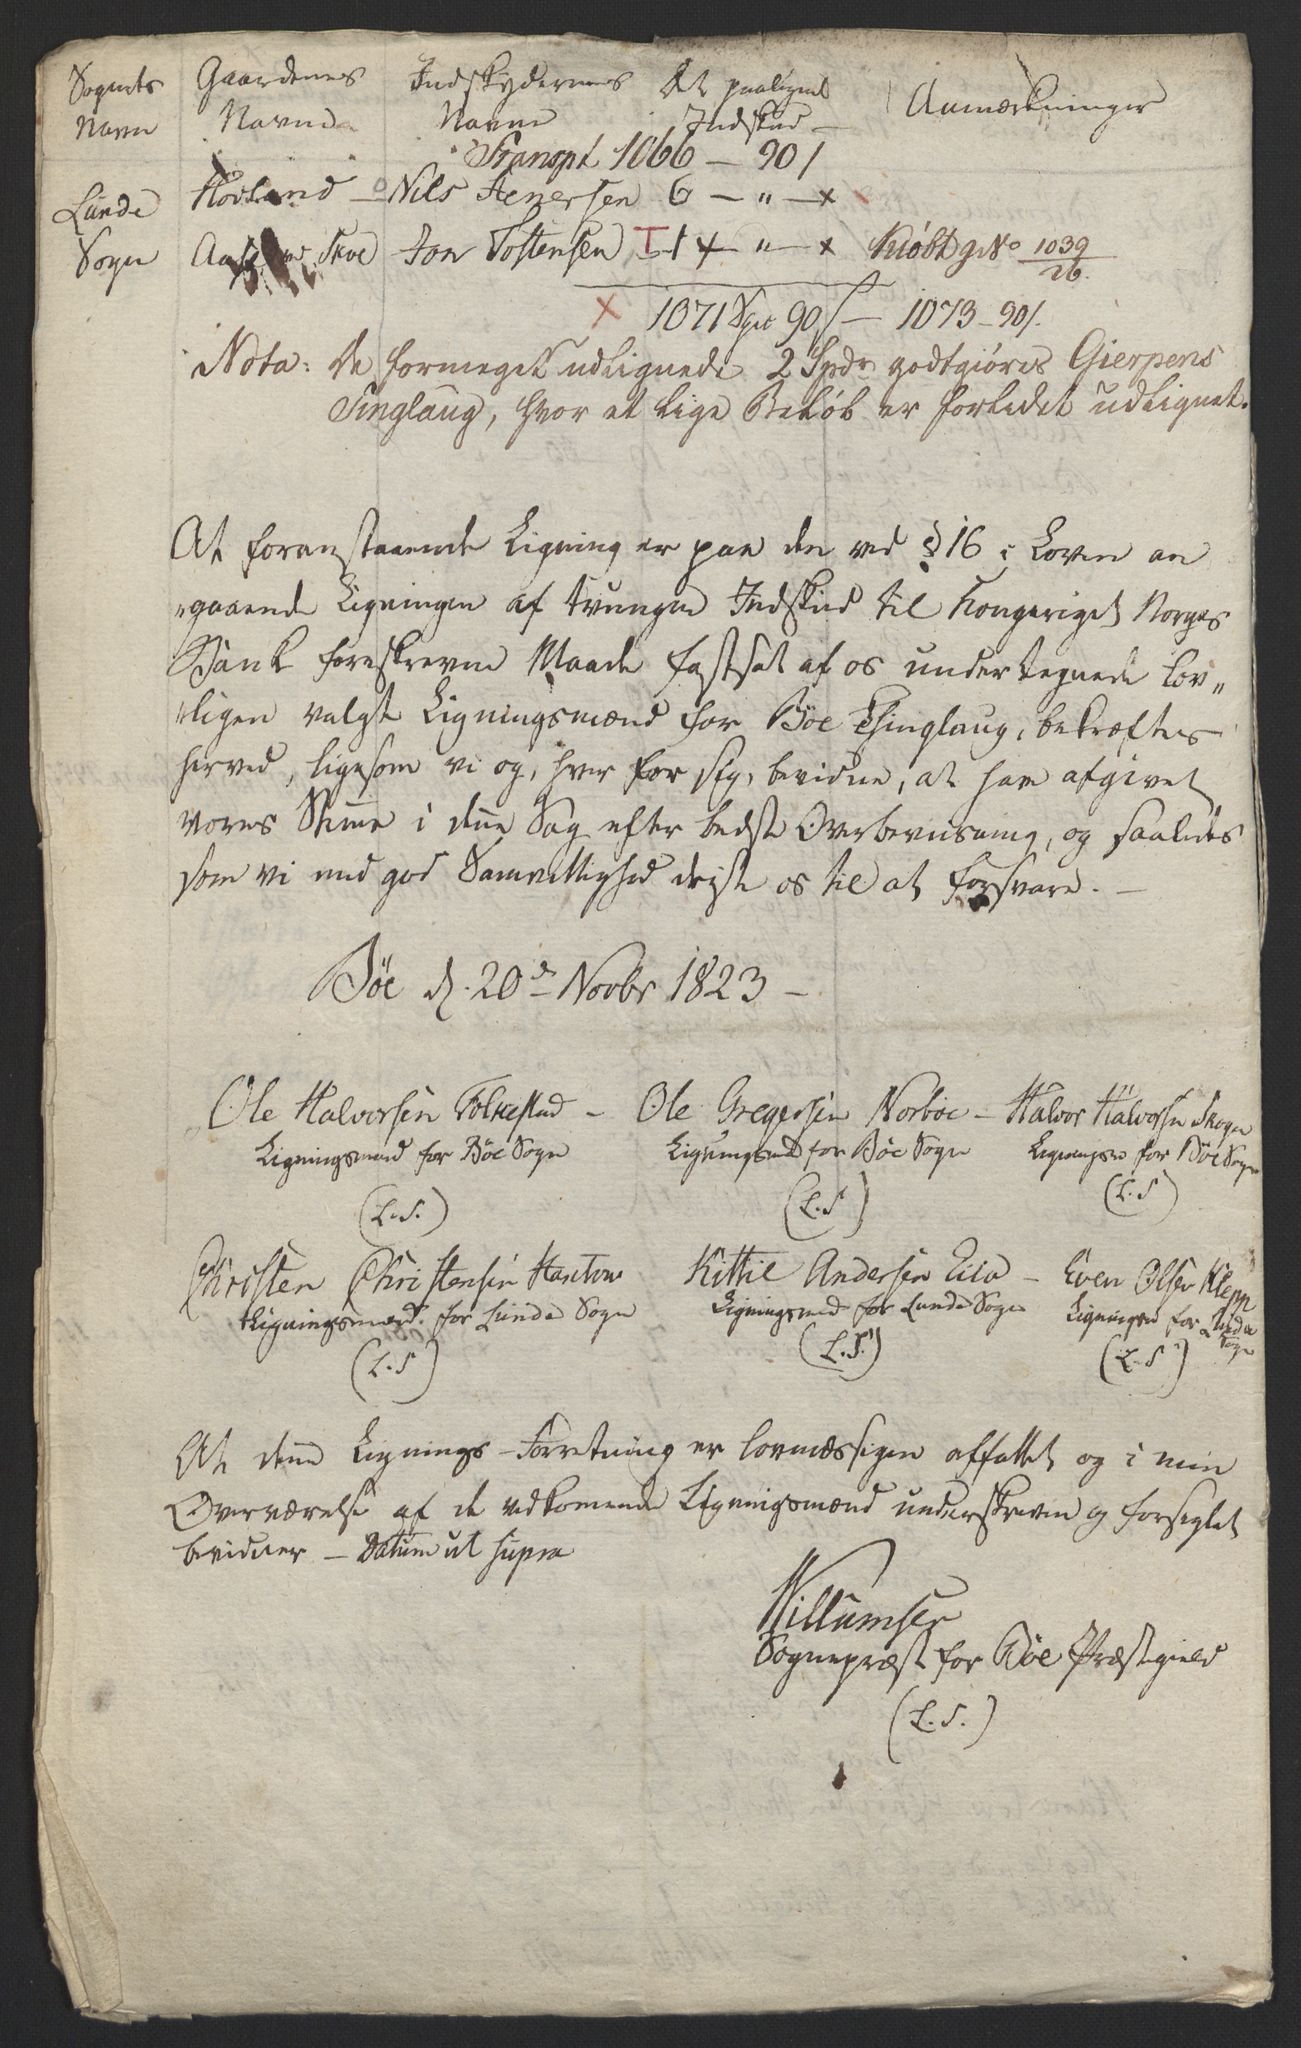 Sognets Gaardenes Indskydernes Det paalignede Anmærkninger
Navn Navne Navne Indskud
Transpt 1066 — 90 ſ
Lunde Hovland Nils Aenersen 6 — " — x
Sogn Skoe Jon Tostensen 1 x " — x Kiøbt gNo 1039/26.
x 1071 Spd 90 ſ — 1073 — 90 ſ.
Nota: De formeget udlignede 2 Spdr godtgiøres Gierpens
Tinglaug, hvor et lige Beløb er forledet udlignet.
At foranstaaende Ligning er paa den ved § 16 i Loven an
"gaaende Ligningen af tvungen Indskud til Kongeriget Norges
Bank foreskrevne Maade fastsat af os undertegnede lov"
"ligen valgte Ligningsmænd for Bøe Thinglaug, bekræftes
herved, ligesom vi og, hver for sig, bevidne, at have afgivet
vores Stemme i denne Sag efter bedste Overbeviisning, og saaledes
som vi med god Samvittighed driste os til at forsvare. —
Bøe d. 20de Novbr 1823 —
Ole Halvorsen Folkestad — Ole Gregersen Norboe — Halvor Halvorsen Skogn
Ligningsmand for Bøe Sogn Ligningsmd for Bøe Sogn Ligningsm for Bøe Sogn
(L.S.) (L.S) (L.S)
Christen Christensen Hanton Kittil Andersen Eiia — Even Olsen Klepp
Ligningsmand for Lunde Sogn Ligningsmd for Lunde Sogn Ligningsm for Lunde Sogn
(L.S) (L.S.) (L.S)
At denne Lignings-Forretning er lovmæssigen affattet og i min
Overværelse af de vedkomende Ligningsmænd underskreven og forseglet
bevidner — Datum ut supra
Willumsen
Sognepræst for Bøe Præstegield
(L.S.)